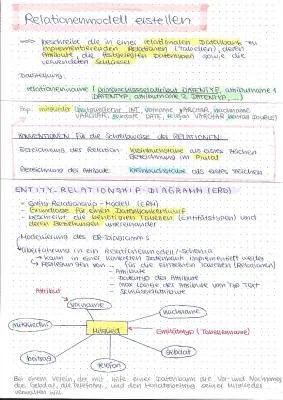 Relationenmodell erstellen
beschreibt die in einer relationalen Datenbank zu
implementierenden Relationen (Tabellen), deren
Attribute, die festgelegten Datentypen sowie die
verwendeten Schlüssel
Darstellung:
relationenname (primärschlüsselattribut DATENTYP, attributname 1
DATENTYP, attributname 2 DATENTYP, ...)
Bsp. mitglieder (mitgliedernr INT, vorname VARCHAR, nachname
VARCHAR, gebdat DATE, telefon VARCHAR, beitrag DOUBLE)
KONVENTIONEN für die Schreibweise der RELATIONEN:
Bezeichnung der Relation: Kleinbuchstabe als erstes Zeichen
Bezeichnung im Plural
Bezeichnung der Attribute: Kleinbuchstabe als erstes Zeichen
ENTITY-RELATIONSHIP-DIAGRAMM (ERD)
- Entity Relationship - Modell (ERM)
- Grundlage für einen Datenbankentwurf
- beschreibt die benötigten Tabellen (Entitätstypen) und
deren Beziehungen untereinander
- Modellierung des ER-Diagramms
Überführung in ein Relationenmodell/-Schema
kann in einer konkreten Datenbank implementiert werden
Festlegungen von für die einzelnen Tabellen (Relationen)
- Attribute
- Datentyp der Attribute
- max. Länge der Attribute vom Typ Text
- Schlüsselattribute
Attribut
vorname
nachname
mitgliednr
Mitglied
Entitätstyp (Tabellenname)
beitrag
gebdat
telefon
Bei einem Verein, der mit Hilfe einer Datenbank die Vor- und Nachnamen,
die Gebdat, die Telefonnr. und den Beitrag seiner Mitglieder
verwalten will